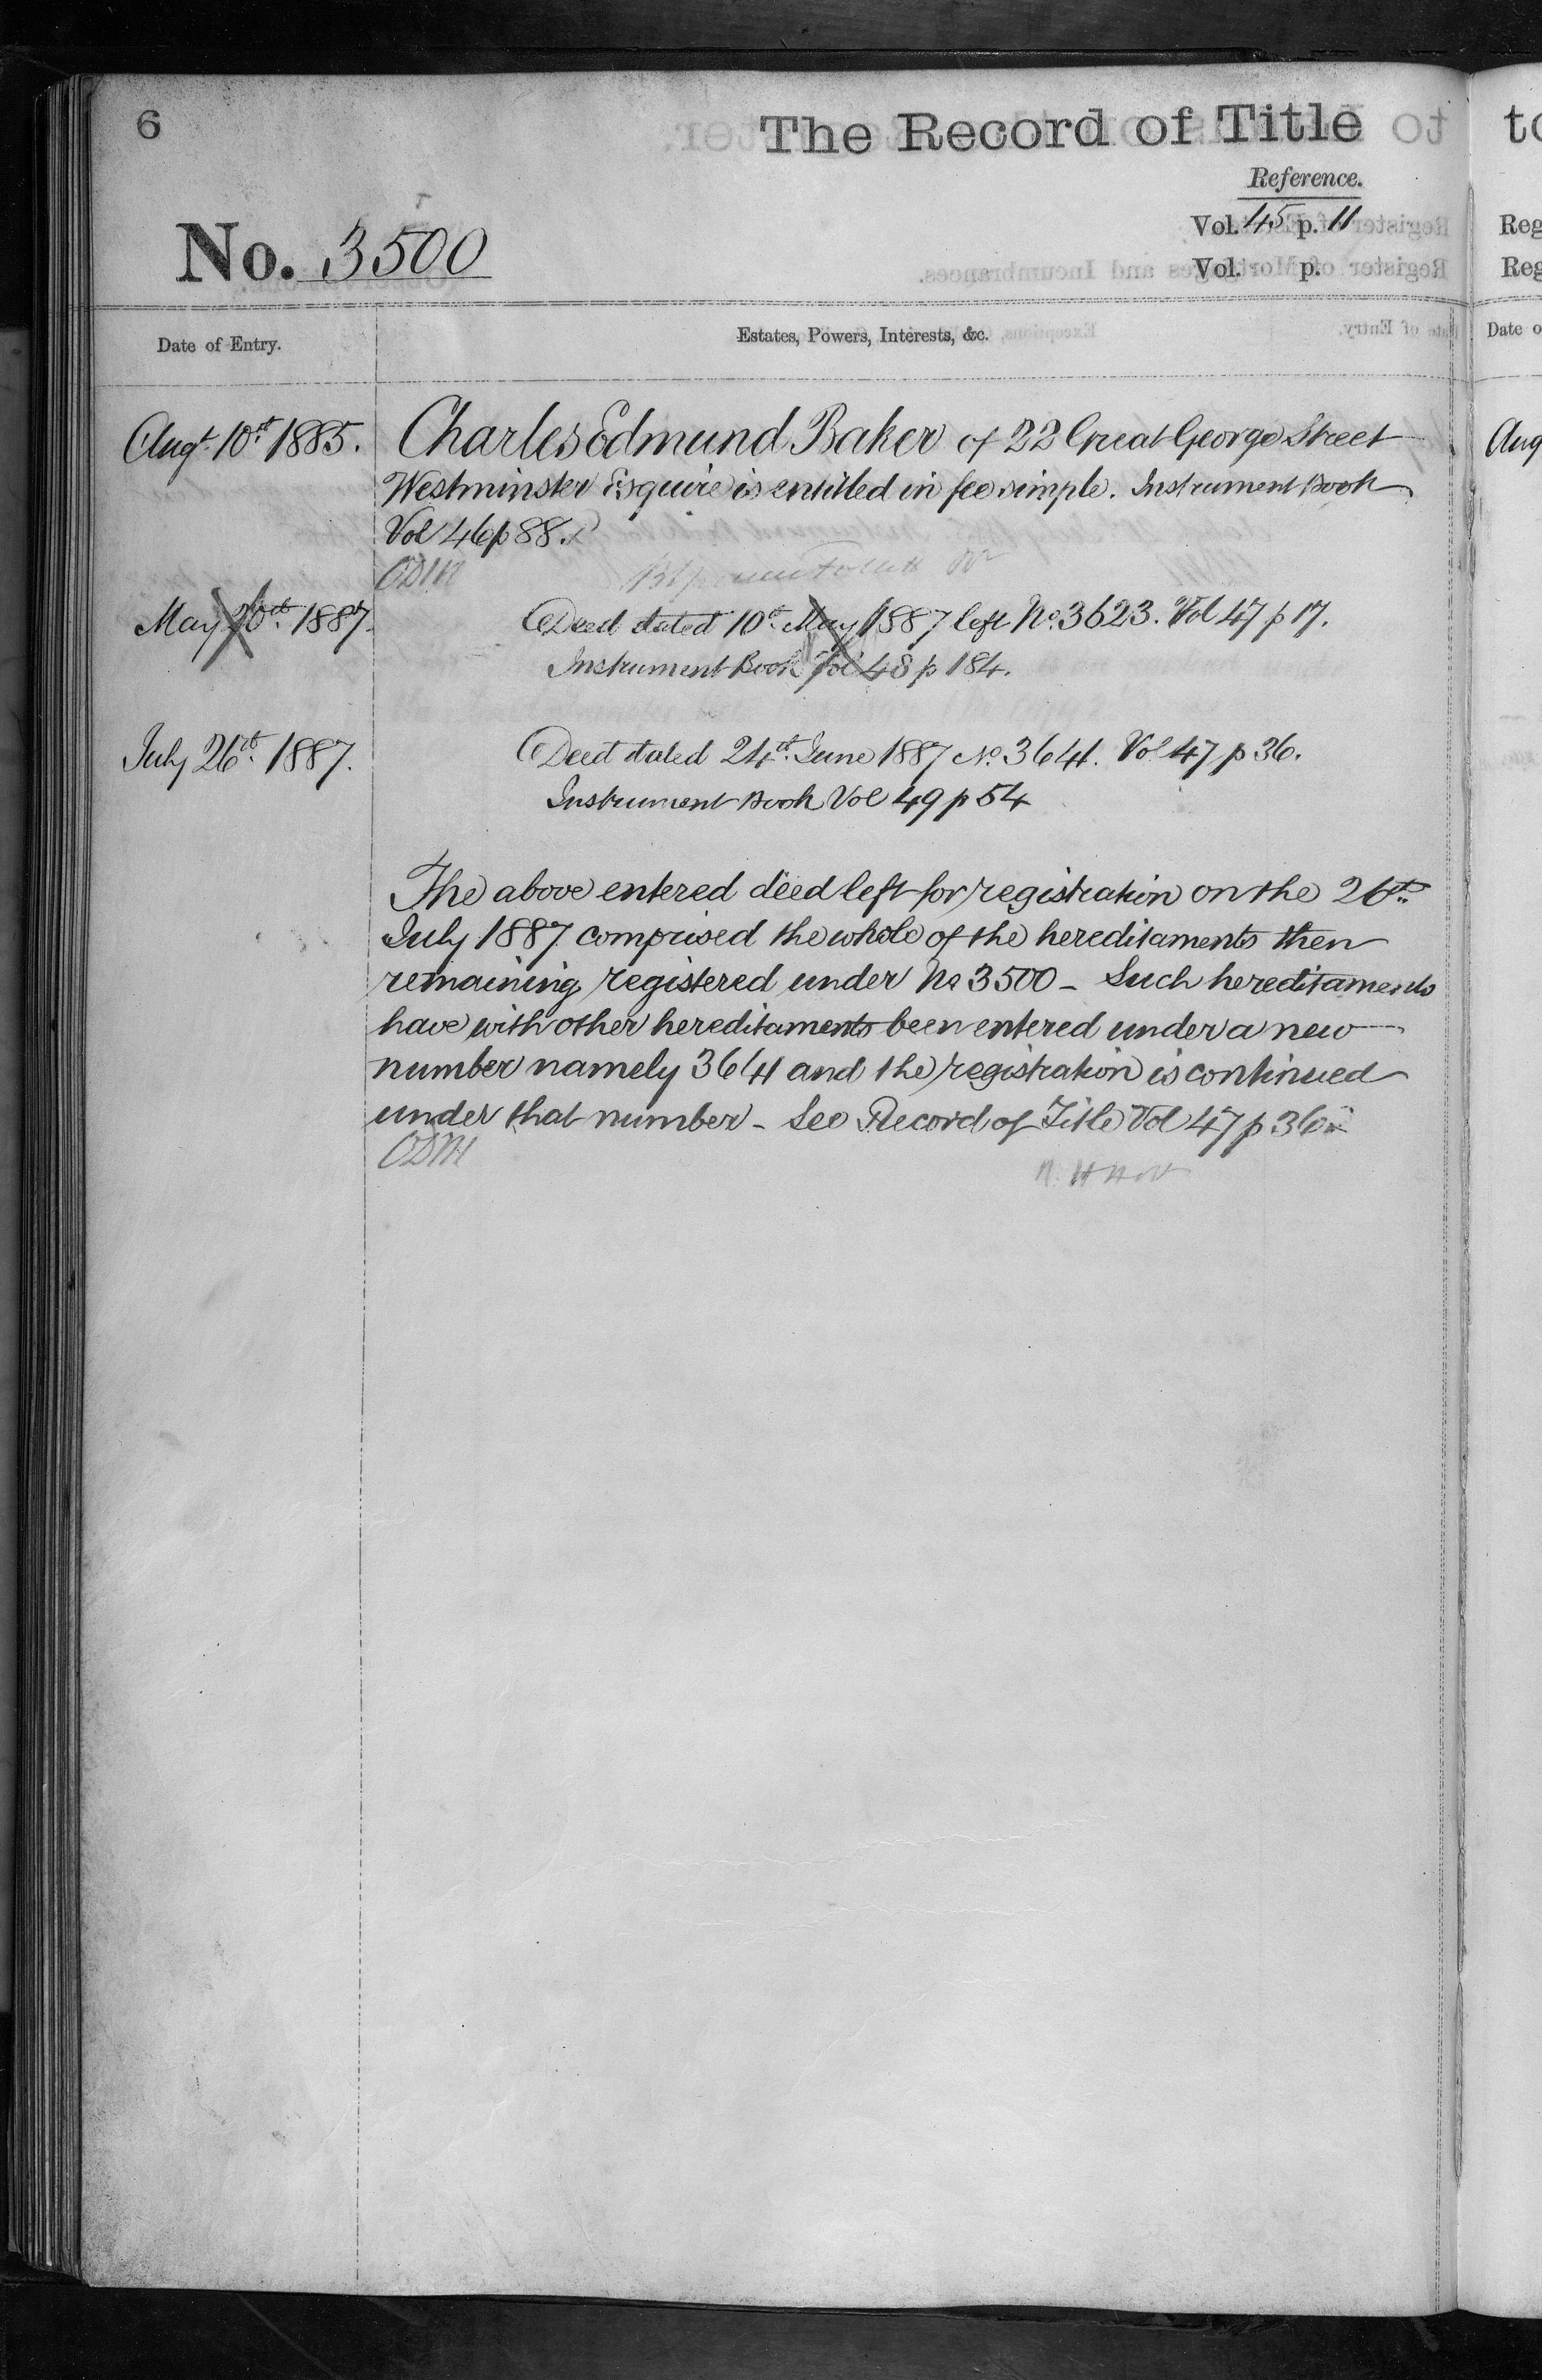 6
The Record of Title
Reference.
No. 3500
Vol. 45 p. 11
Vol. p.
Date of Entry.
Estates, Powers, Interests, &c.
Augt. 10th 1885.
Charles Edmund Baker of 22 Great George Street
Westminster Esquire is entitled in fee simple. Instrument Book
Vol 46 p 88.
ODM
May 20th 1887.
Deed dated 10th May 1887 left No. 3623. Vol 47 p 17.
Instrument Book Vol 48 p 184.
July 26th 1887.
Deed dated 24th June 1887 No. 3641. Vol 47 p 36.
Instrument Book Vol 49 p 54
The above entered deed left for registration on the 26th
July 1887 comprised the whole of the hereditaments then
remaining registered under No 3500 - Such hereditaments
have with other hereditaments been entered under a new
number namely 3641 and the registration is continued
under that number - See Record of Title Vol 47 p 36
ODM
to
Reg
Reg
Date o
Aug